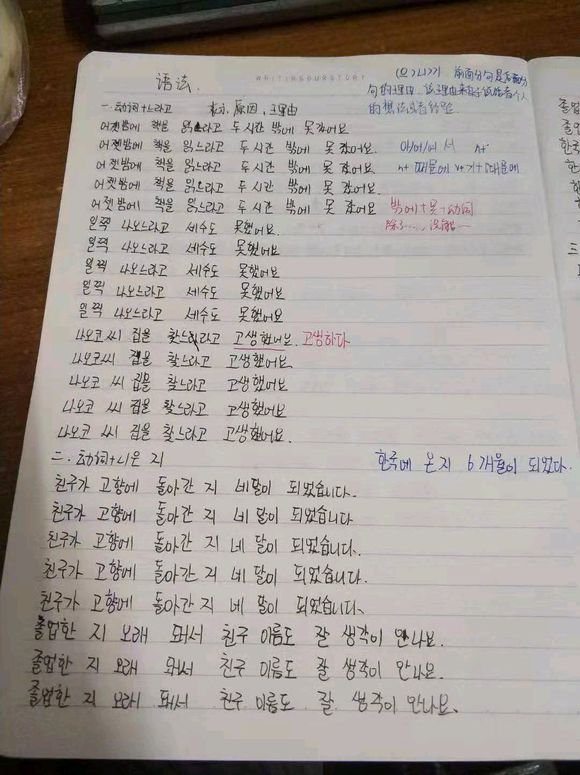 语法.
WRITINGOURSTORY
(으)니까 前面分句是后面分
句的理由, 该理由来自于说话者个人
的想法或者经验
一. 动词+느라고 表示, 原因, 理由
어젯밤에 책을 읽느라고 두 시간 밖에 못 잤어요
어젯밤에 책을 읽느라고 두시간 밖에 못 잤어요. 아/어/여 서 n+
어젯밤에 책을 읽느라고 두시간 밖에 못 잤어요. n+ 때문에 v+기+때문에
어젯밤에 책을 읽느라고 두시간 밖에 못 잤어요.
어젯밤에 책을 읽느라고 두시간 밖에 못 잤어요 밖에+못+动词
除了......没能
일찍 나오느라고 세수도 못했어요.
일찍 나오느라고 세수도 못했어요
일찍 나오느라고 세수도 못했어요
일찍 나오느라고 세수도 못했어요
일찍 나오느라고 세수도 못했어요
나오코 씨 집을 찾느라고 고생했어요. 고생하다
나오코씨 집을 찾느라고 고생했어요
나오코 씨 집을 찾느라고 고생했어요
나오코 씨 집을 찾느라고 고생했어요
나오코 씨 집을 찾느라고 고생했어요.
二. 动词+ㄴ/은 지 한국에 온지 6개월이 되었다.
친구가 고향에 돌아간 지 네달이 되었습니다.
친구가 고향에 돌아간 지 네 달이 되었습니다
친구가 고향에 돌아간 지 네 달이 되었습니다.
친구가 고향에 돌아간 지 네 달이 되었습니다.
친구가 고향에 돌아간 지 네 달이 되었습니다.
졸업한 지 오래 돼서 친구 이름도 잘 생각이 안나요.
졸업한 지 오래 돼서 친구 이름도 잘 생각이 안나요.
졸업한 지 오래 돼서 친구 이름도 잘 생각이 안나요.